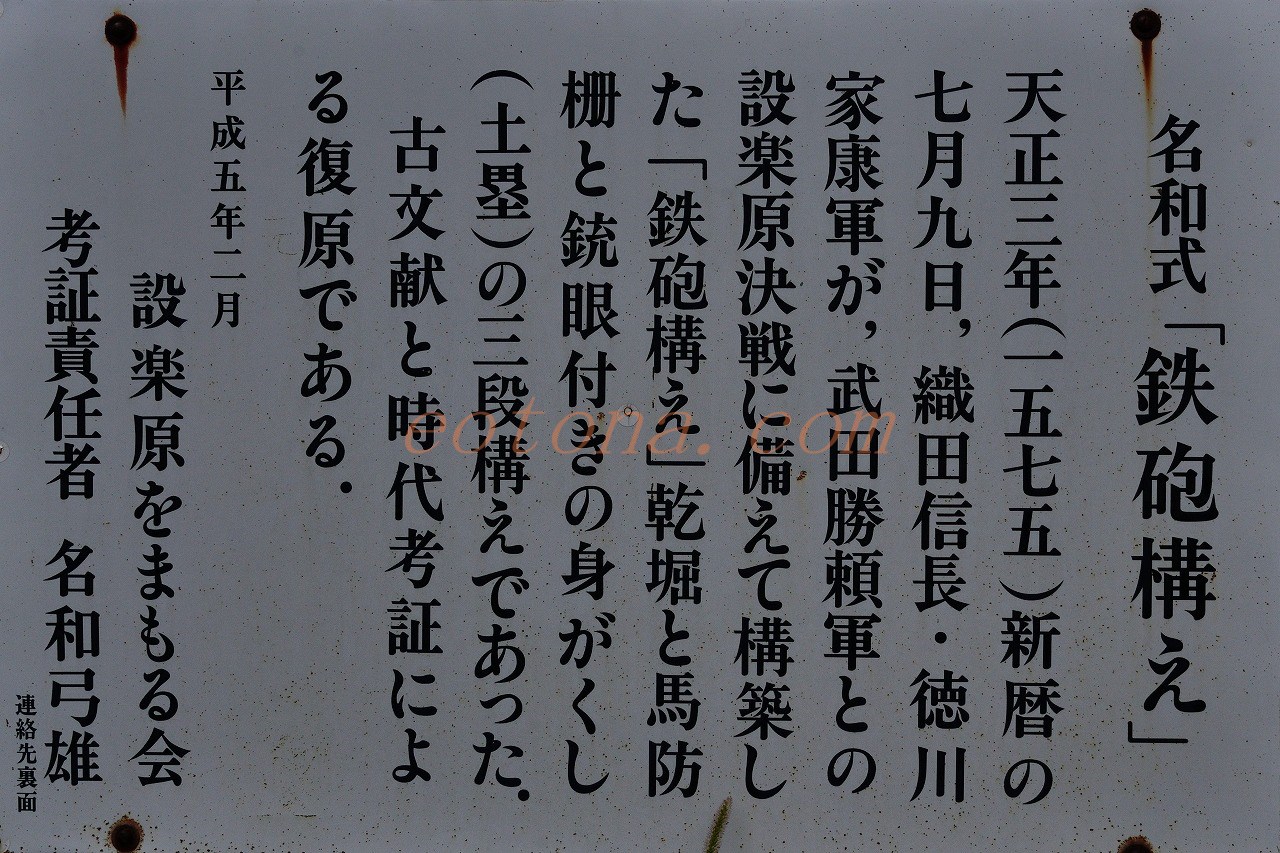 名和式「鉄砲構え」
天正三年(一五七五)新暦の
七月九日,織田信長・徳川
家康軍が,武田勝頼軍との
設楽原決戦に備えて構築し
た「鉄砲構え」乾堀と馬防
柵と銃眼付きの身がくし
(土塁)の三段構えであった.
古文献と時代考証によ
る復原である.
平成五年二月
設楽原をまもる会
考証責任者 名和弓雄
連絡先裏面
eotona.com